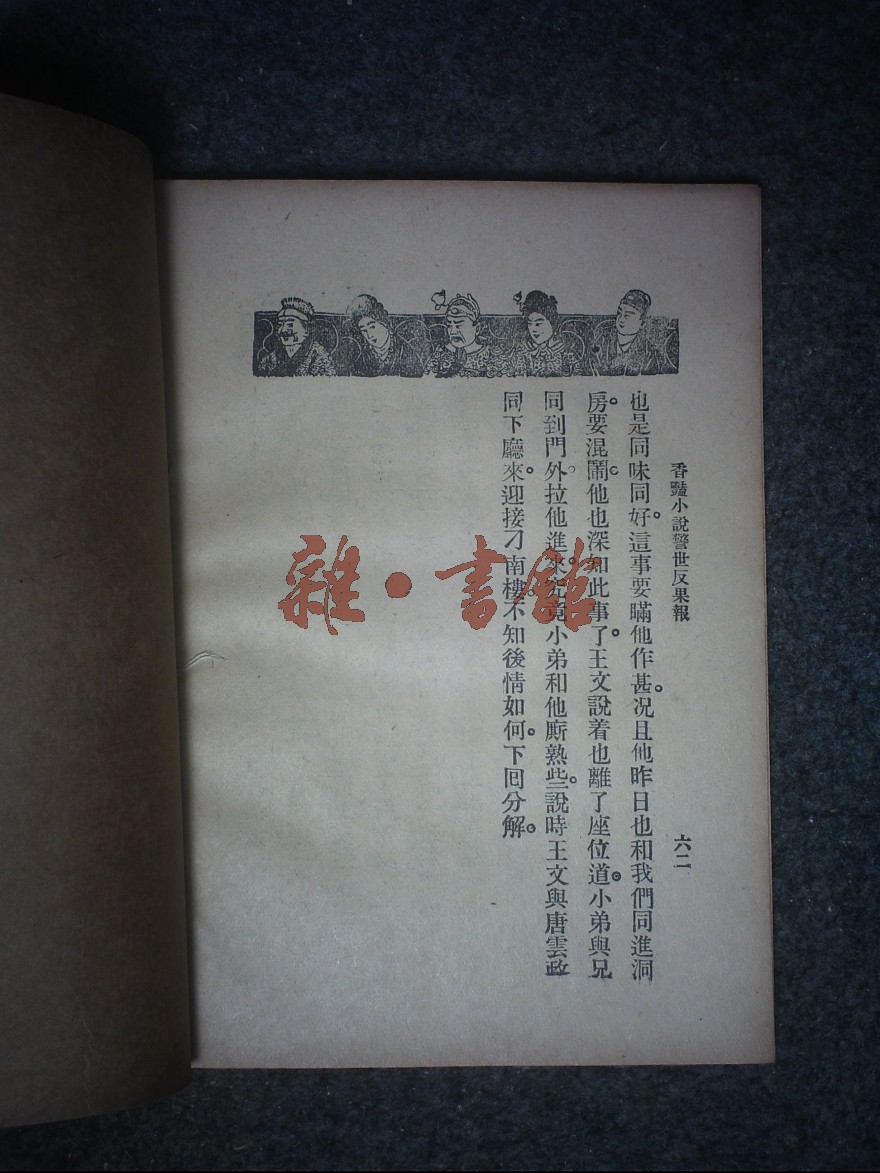 香豔小說警世反果報
六二
也是同味同好。這事要瞞他作甚。况且他昨日也和我們同進洞
房。要混鬧。他也深知此事了。王文說着也離了座位道。小弟與兄
同到門外。拉他進來。究竟小弟和他廝熟些。說時王文與唐雲政
同下廳來。迎接刁南樓。不知後情如何。下回分解。
雜·書館